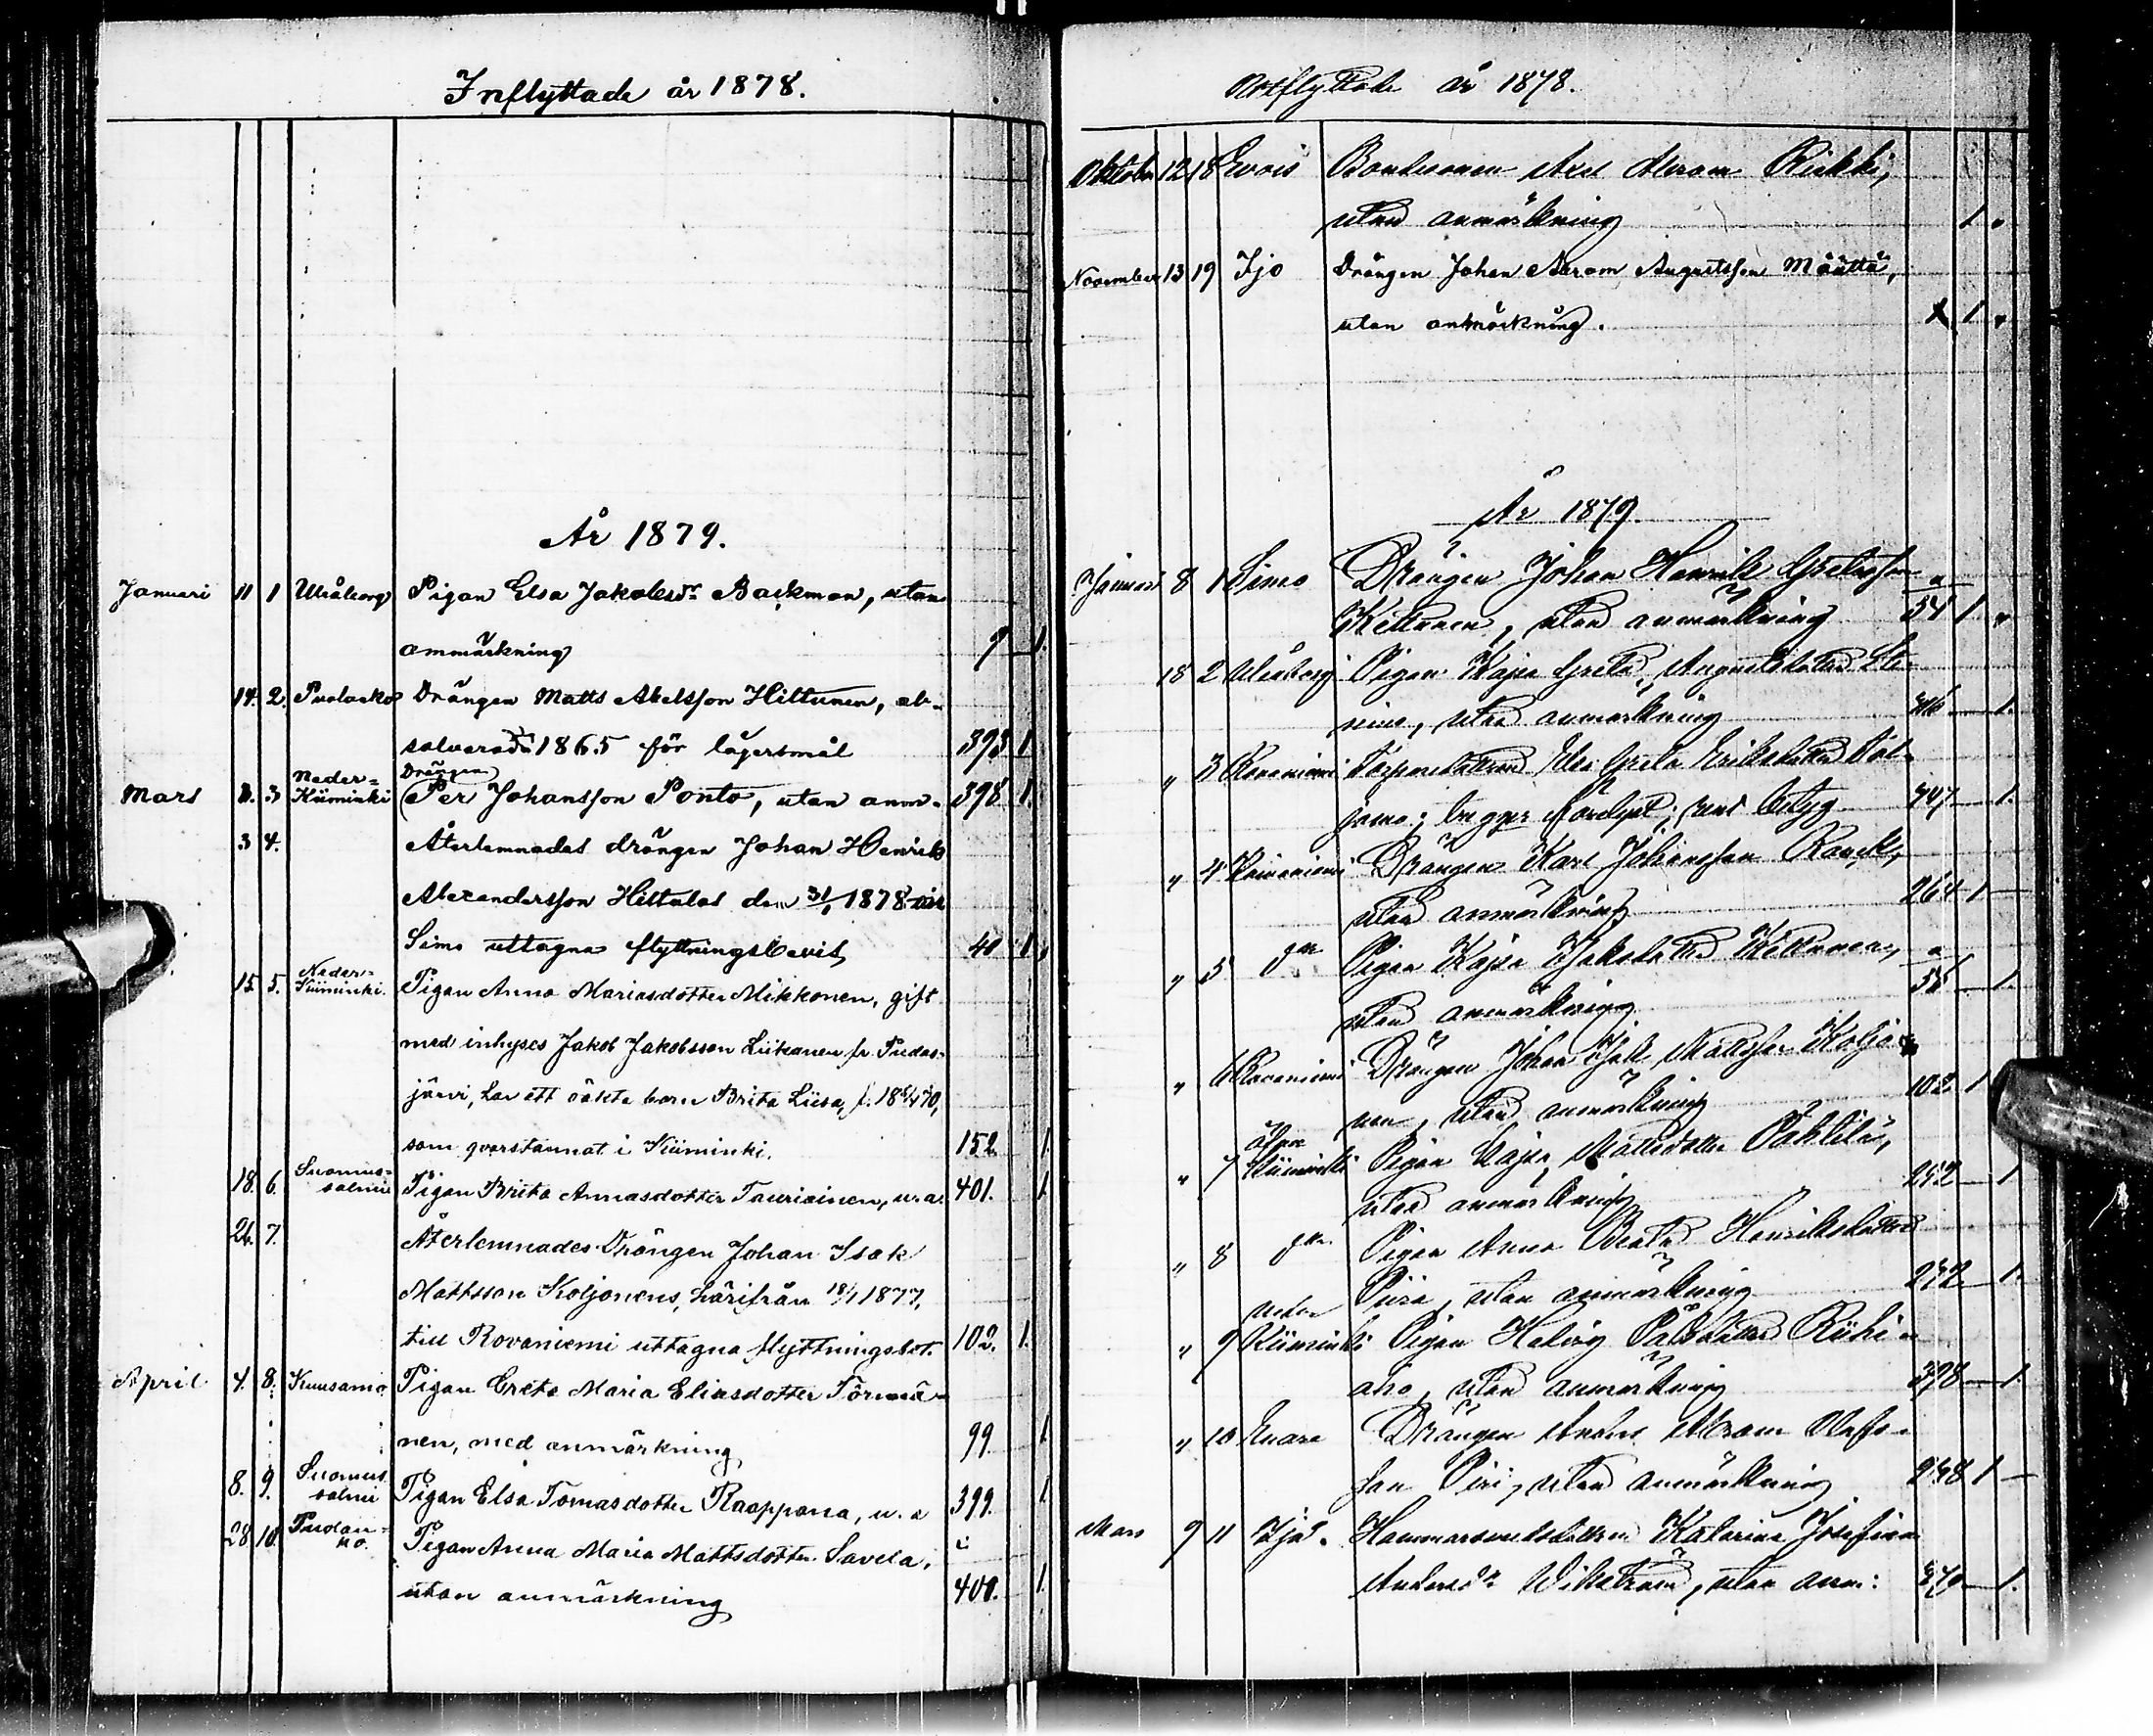 Inflyttade år 1878.
År 1879.
Januari 11 1 Uleåborg Pigan Elsa Jakobsdr Backman, utan
anmärkning 9 1.
14. 2. Pudasko Drängen Matts Abelsson Hiltunen, ab-
solverad 1865 för lägersmål 393 1
Neder= Drängen
Mars 3. 3 Kiiminki Per Johansson Ponto, utan anm. 398 1.
3 4. Återlemnades drängen Johan Henrik
Alexandersson Hiltulas den 31/1 1878 till
Simo uttagna flyttningsbevis 40 1,
Neder=
15 5. Kiiminki. Pigan Anna Mariasdotter Mikkonen, gift
med inhyses Jakob Jakobsson Liikanen fr. Pudas-
järvi, har ett oäkta barn Brita Liisa, f. 18 70,
som qvarstannat i Kiiminki. 152 1.
Suomus=
18. 6. salmi Pigan Brita Annasdotter Tauriainen, u. a. 401. 1.
26. 7. Återlemnades Drängen Johan Isak
Mattsson Koljonens, härifrån 18/1 1877,
till Rovaniemi uttagna flyttningsbet. 102. 1.
April 4. 8. Kuusamo. Pigan Greta Maria Eliasdotter Törmä-
nen, med anmärkning 99 1
Suomus
8. 9. salmi Pigan Elsa Tomasdotter Raappana, u. a 399. 1
28 10. Pigan Anna Maria Mattsdotter Savela,
utan anmärkning 400. 1.
Utflyttade år 1878.
Oktober 12 18 Bondesonen Axel Abram Riekki,
utan anmärkning 1
November 13 19 Ijo Drängen Johan Abram Augustsson Määttä,
utan anmärkning. 1
År 1879.
Januari 8 1 Simo Drängen Johan Henrik Gretasson
Kettunen, utan anmärkning 54 1
18 2 Uleåborg Pigan Kajsa Greta Augustsdotter Le-
nius, utan anmärkning 1.
" 3 Rovaniemi Torparedottren Elsa Greta Eriksdotter
begge 1.
" 4 Rovaniemi Drängen Karl Johansson
utan anmärkning 264 1
" 5 Pigan Kajsa Jakobsdotter Kettunen,
utan anmärkning 1.
" 6 Rovaniemi Drängen Johan Isak Mattsson Koljo-
nen, utan anmärkning 102 1
" 7 Kiiminki Pigan Kajsa Mattsdotter
utan anmärkning 1
" 8 Pigan Anna Beata Henriksdotter
utan anmärkning 1.
Neder
" 9 Kiiminki Pigan Hedvig Påhlsdotter Riihi-
aho, utan anmärkning 398 1.
" 10 Enare Drängen Anders Abram Olofs-
son utan anmärkning 1
Mars 9 11 Ijo. Hammarsmedsdottren Katarina Josefina
Andersdr Wikström, utan anm: 1.